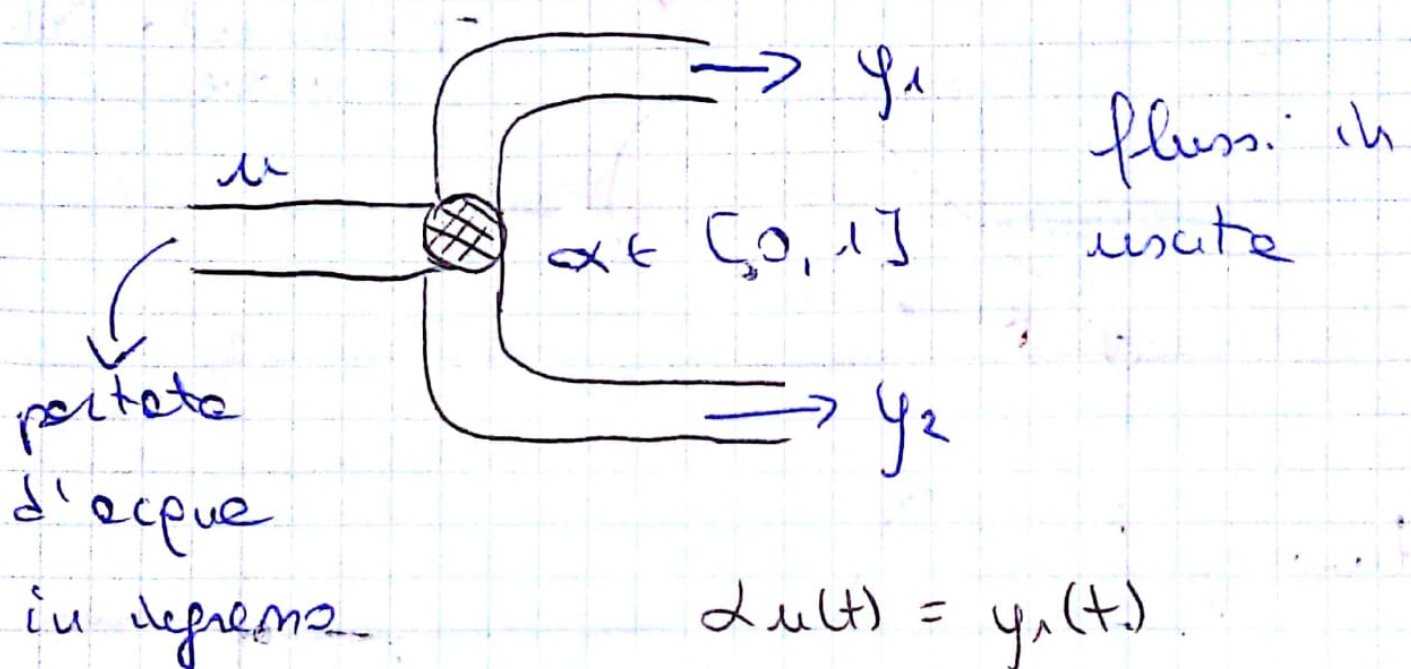 y1
flussi in
u
α ∈ [0, 1]
uscita
y2
portata
d'acqua
in ingresso
α u(t) = y1(t)